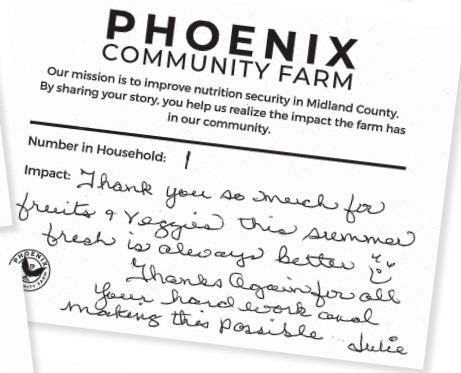 PHOENIX
COMMUNITY FARM
Our mission is to improve nutrition security in Midland County.
By sharing your story, you help us realize the impact the farm has
in our community.
Number in Household: 1
Impact: Thank you so much for
fruits & Veggies this summer
fresh is always better
Thanks Again for all
your hard work and
making this possible Julie
PHOENIX
COMMUNITY FARM